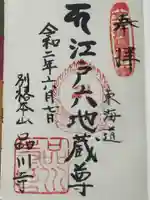 奉拝
東海道
江戸六地蔵尊
令和二年十月七日
別格本山 品川寺